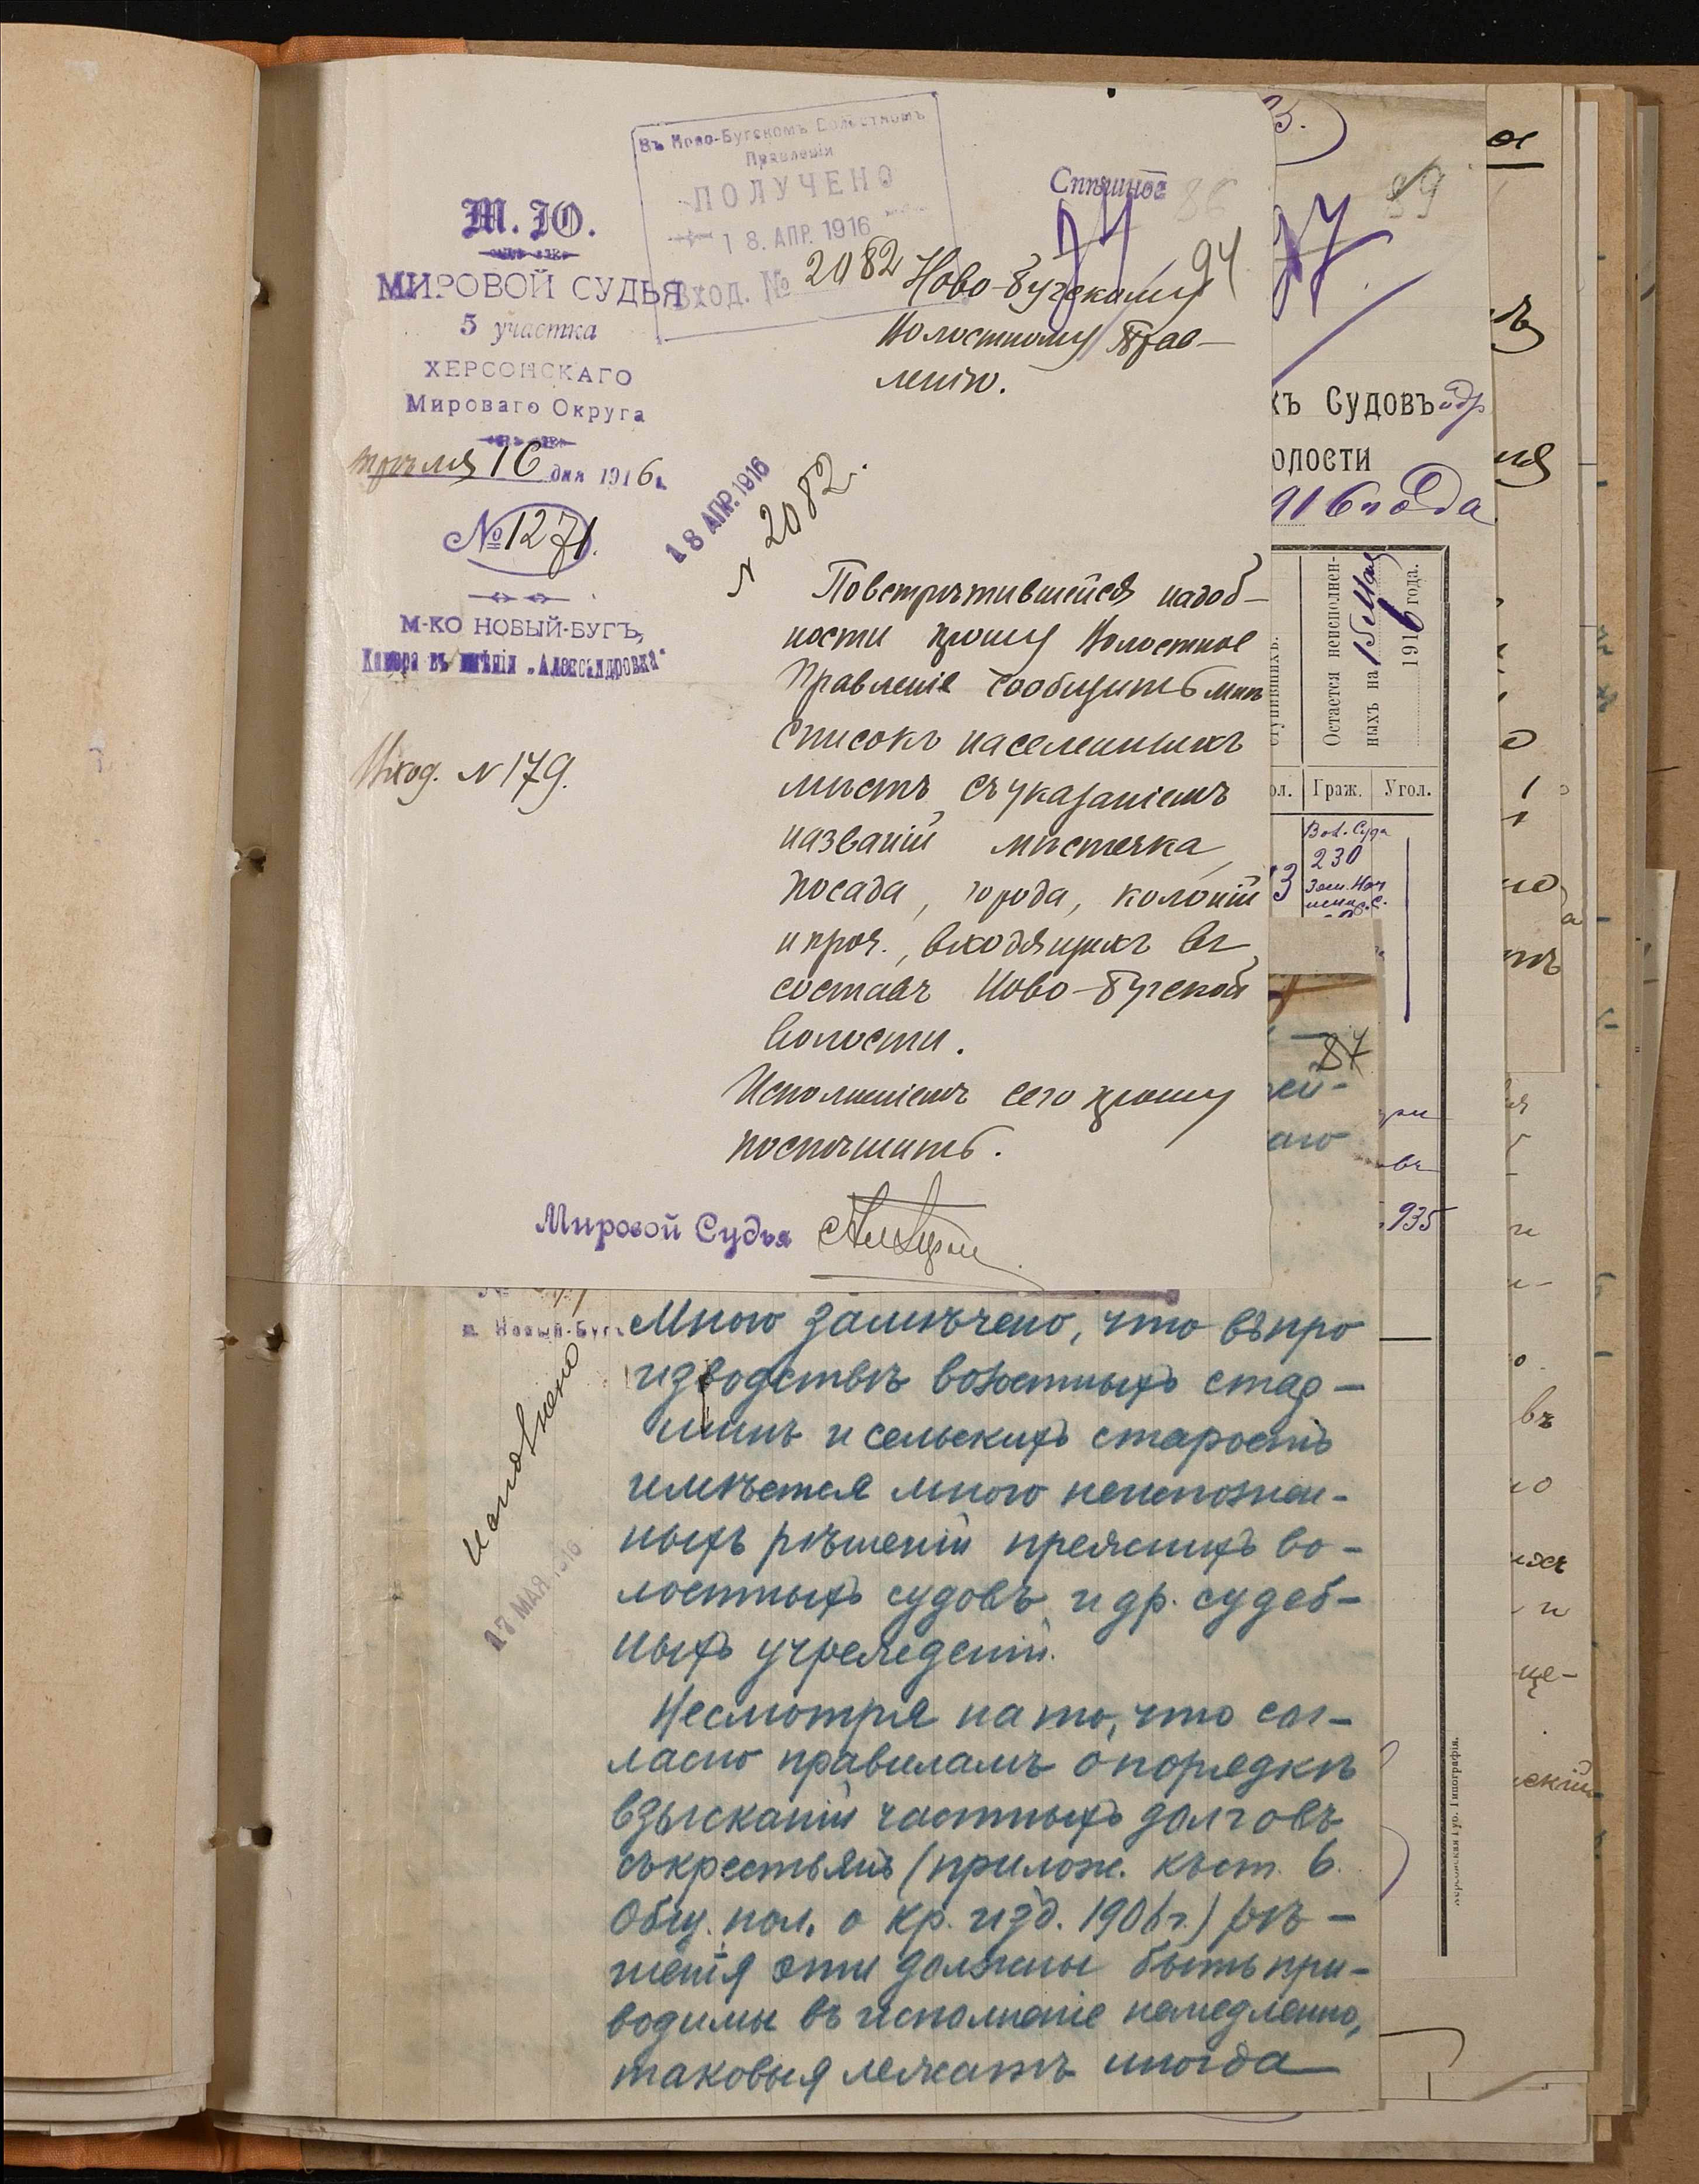 Въ Ново-Бугскомъ Волостномъ
Правленіи
ПОЛУЧЕНО
18. АПР. 1916
Вход. № 2082
Спѣшное
86
94
М. Ю.
МИРОВОЙ СУДЬЯ
5 участка
ХЕРСОНСКАГО
Мироваго Округа
16 дня 1916 г.
№ 1271.
М-КО НОВЫЙ-БУГЪ,
Камера въ имѣніи „Александровка“
Вход. N 179.
Ново-Бугскому
Волостному Прав-
ленію.
18 АПР. 1916
N 2082.
По встрѣтившейся надоб-
ности прошу Волостное
Правленіе сообщить мнѣ
списокъ населенныхъ
мѣстъ съ указаніемъ
названій мѣстечка,
посада, города, колоній
и проч., входящихъ въ
составъ Ново-Бугской
волости.
Исполненіемъ сего прошу
поспѣшить.
Мировой Судья
89
77
хъ Судовъ и др
олости
916 года
Остается неисполнен-
ныхъ на 15 Мая
1916 года.
ол. Граж. Угол.
Вол. Суда
230
3
Зем. Нач
87
935
м. Новый-Бугъ
исполнено
17 МАЯ 1916
Мною замѣчено, что въ про
изводствѣ волостныхъ стар-
шинъ и сельскихъ старостъ
имѣется много неисполнен-
ныхъ рѣшеній прежнихъ во-
лостныхъ судовъ и др. судеб-
ныхъ учрежденій.
Несмотря на то, что сог-
ласно правиламъ о порядкѣ
взысканій частныхъ долговъ
съ крестьянъ (прилож. къ ст. 6.
Общ. пол. о кр. изд. 1906 г.) рѣ-
шенія эти должны быть при-
водимы въ исполненіе немедленно,
таковыя лежатъ иногда